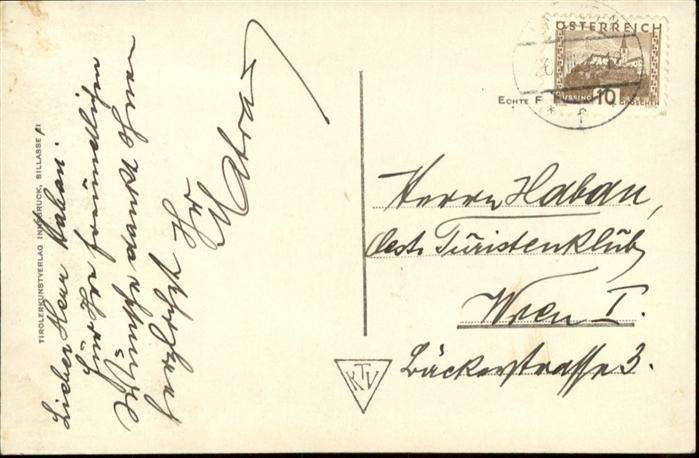 TIROLERKUNSTVERLAG INNSBRUCK, SILLGASSE 21
Lieber Herr Haban!
für Ihre freundlichen
Wünsche dankt Ihnen
herzlichst Ihr
ÖSTERREICH
GÜSSING 10 GROSCHEN
ECHTE F
Herrn Haban,
Oest. Touristenklub,
Wien I.
Bäckerstrasse 3.
KTV